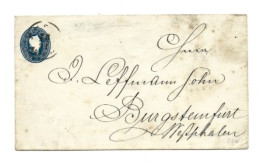 Herrn
J. Leffmann Sohn
Burgsteinfurt
Westphalen